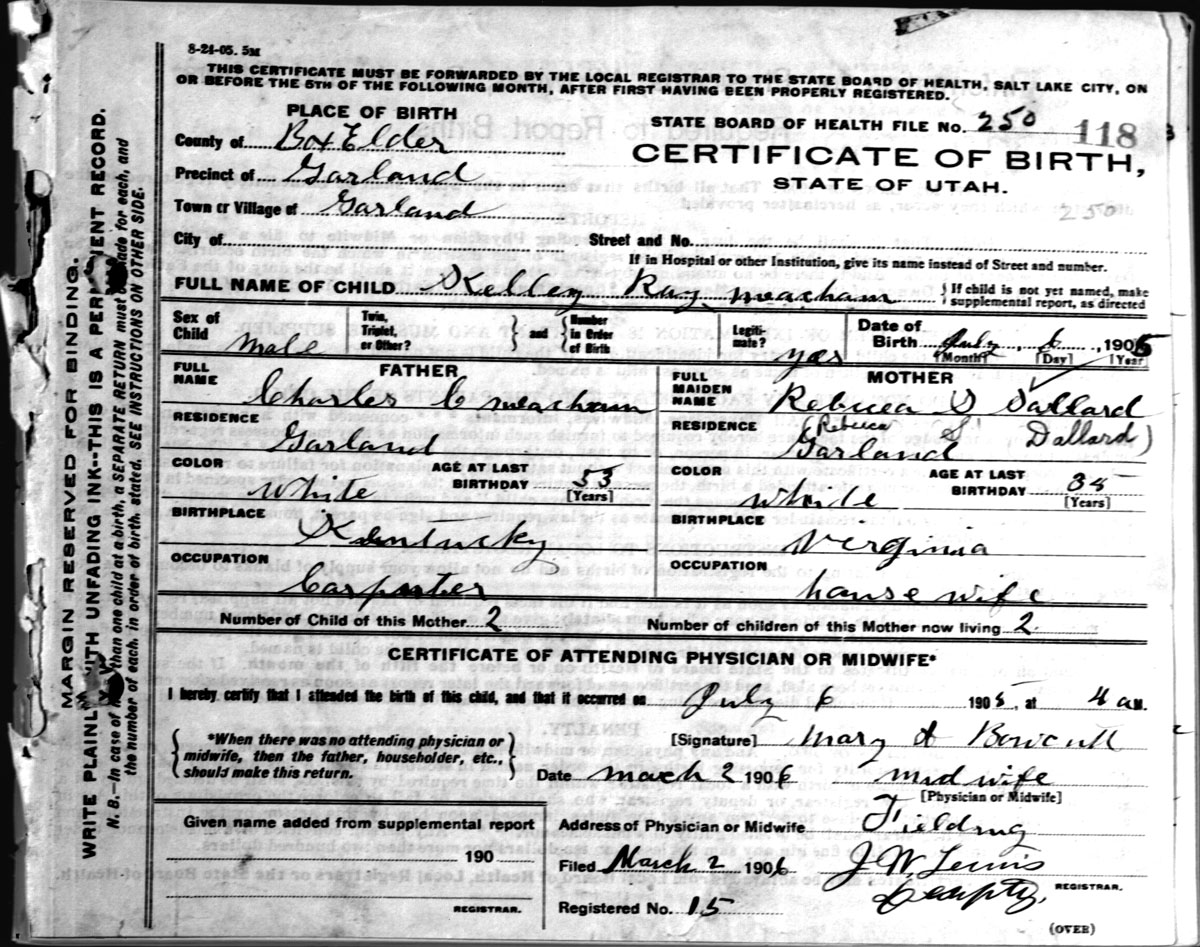 8-24-05. 5M
THIS CERTIFICATE MUST BE FORWARDED BY THE LOCAL REGISTRAR TO THE STATE BOARD OF HEALTH, SALT LAKE CITY, ON
OR BEFORE THE 5TH OF THE FOLLOWING MONTH, AFTER FIRST HAVING BEEN PROPERLY REGISTERED.
PLACE OF BIRTH
STATE BOARD OF HEALTH FILE No. 250 118
County of Box Elder
CERTIFICATE OF BIRTH,
Precinct of Garland
STATE OF UTAH.
Town or Village of Garland
250
City of Street and No.
If in Hospital or other Institution, give its name instead of Street and number.
FULL NAME OF CHILD Kelley Ray Meacham } If child is not yet named, make
supplemental report, as directed
Sex of Child Male Twin, Triplet, or Other? } and { Number in Order of Birth Legiti-mate? yes Date of Birth July 6, 1905
[Month] [Day] [Year]
FATHER MOTHER
FULL NAME Charles C Meacham FULL MAIDEN NAME Rebecca S Dallard
(Rebecca S. Dallard)
RESIDENCE Garland RESIDENCE Garland
COLOR White AGE AT LAST BIRTHDAY 53 [Years] COLOR White AGE AT LAST BIRTHDAY 35 [Years]
BIRTHPLACE Kentucky BIRTHPLACE Verginia
OCCUPATION Carpenter OCCUPATION house wife
Number of Child of this Mother 2 Number of children of this Mother now living 2
CERTIFICATE OF ATTENDING PHYSICIAN OR MIDWIFE*
I hereby certify that I attended the birth of this child, and that it occurred on July 6 1905, at 4 a M.
{ *When there was no attending physician or
midwife, then the father, householder, etc.,
should make this return. }
[Signature] Mary A
Date March 2 1906 Midwife
[Physician or Midwife]
Given name added from supplemental report
190
REGISTRAR.
Address of Physician or Midwife Fielding
Filed March 2 1906 J W Lewis
REGISTRAR.
Registered No. 15
(OVER)
MARGIN RESERVED FOR BINDING.
WRITE PLAINLY WITH UNFADING INK--THIS IS A PERMANENT RECORD.
N. B.—In case of more than one child at a birth, a SEPARATE RETURN must be made for each, and
the number of each, in order of birth, stated. SEE INSTRUCTIONS ON OTHER SIDE.